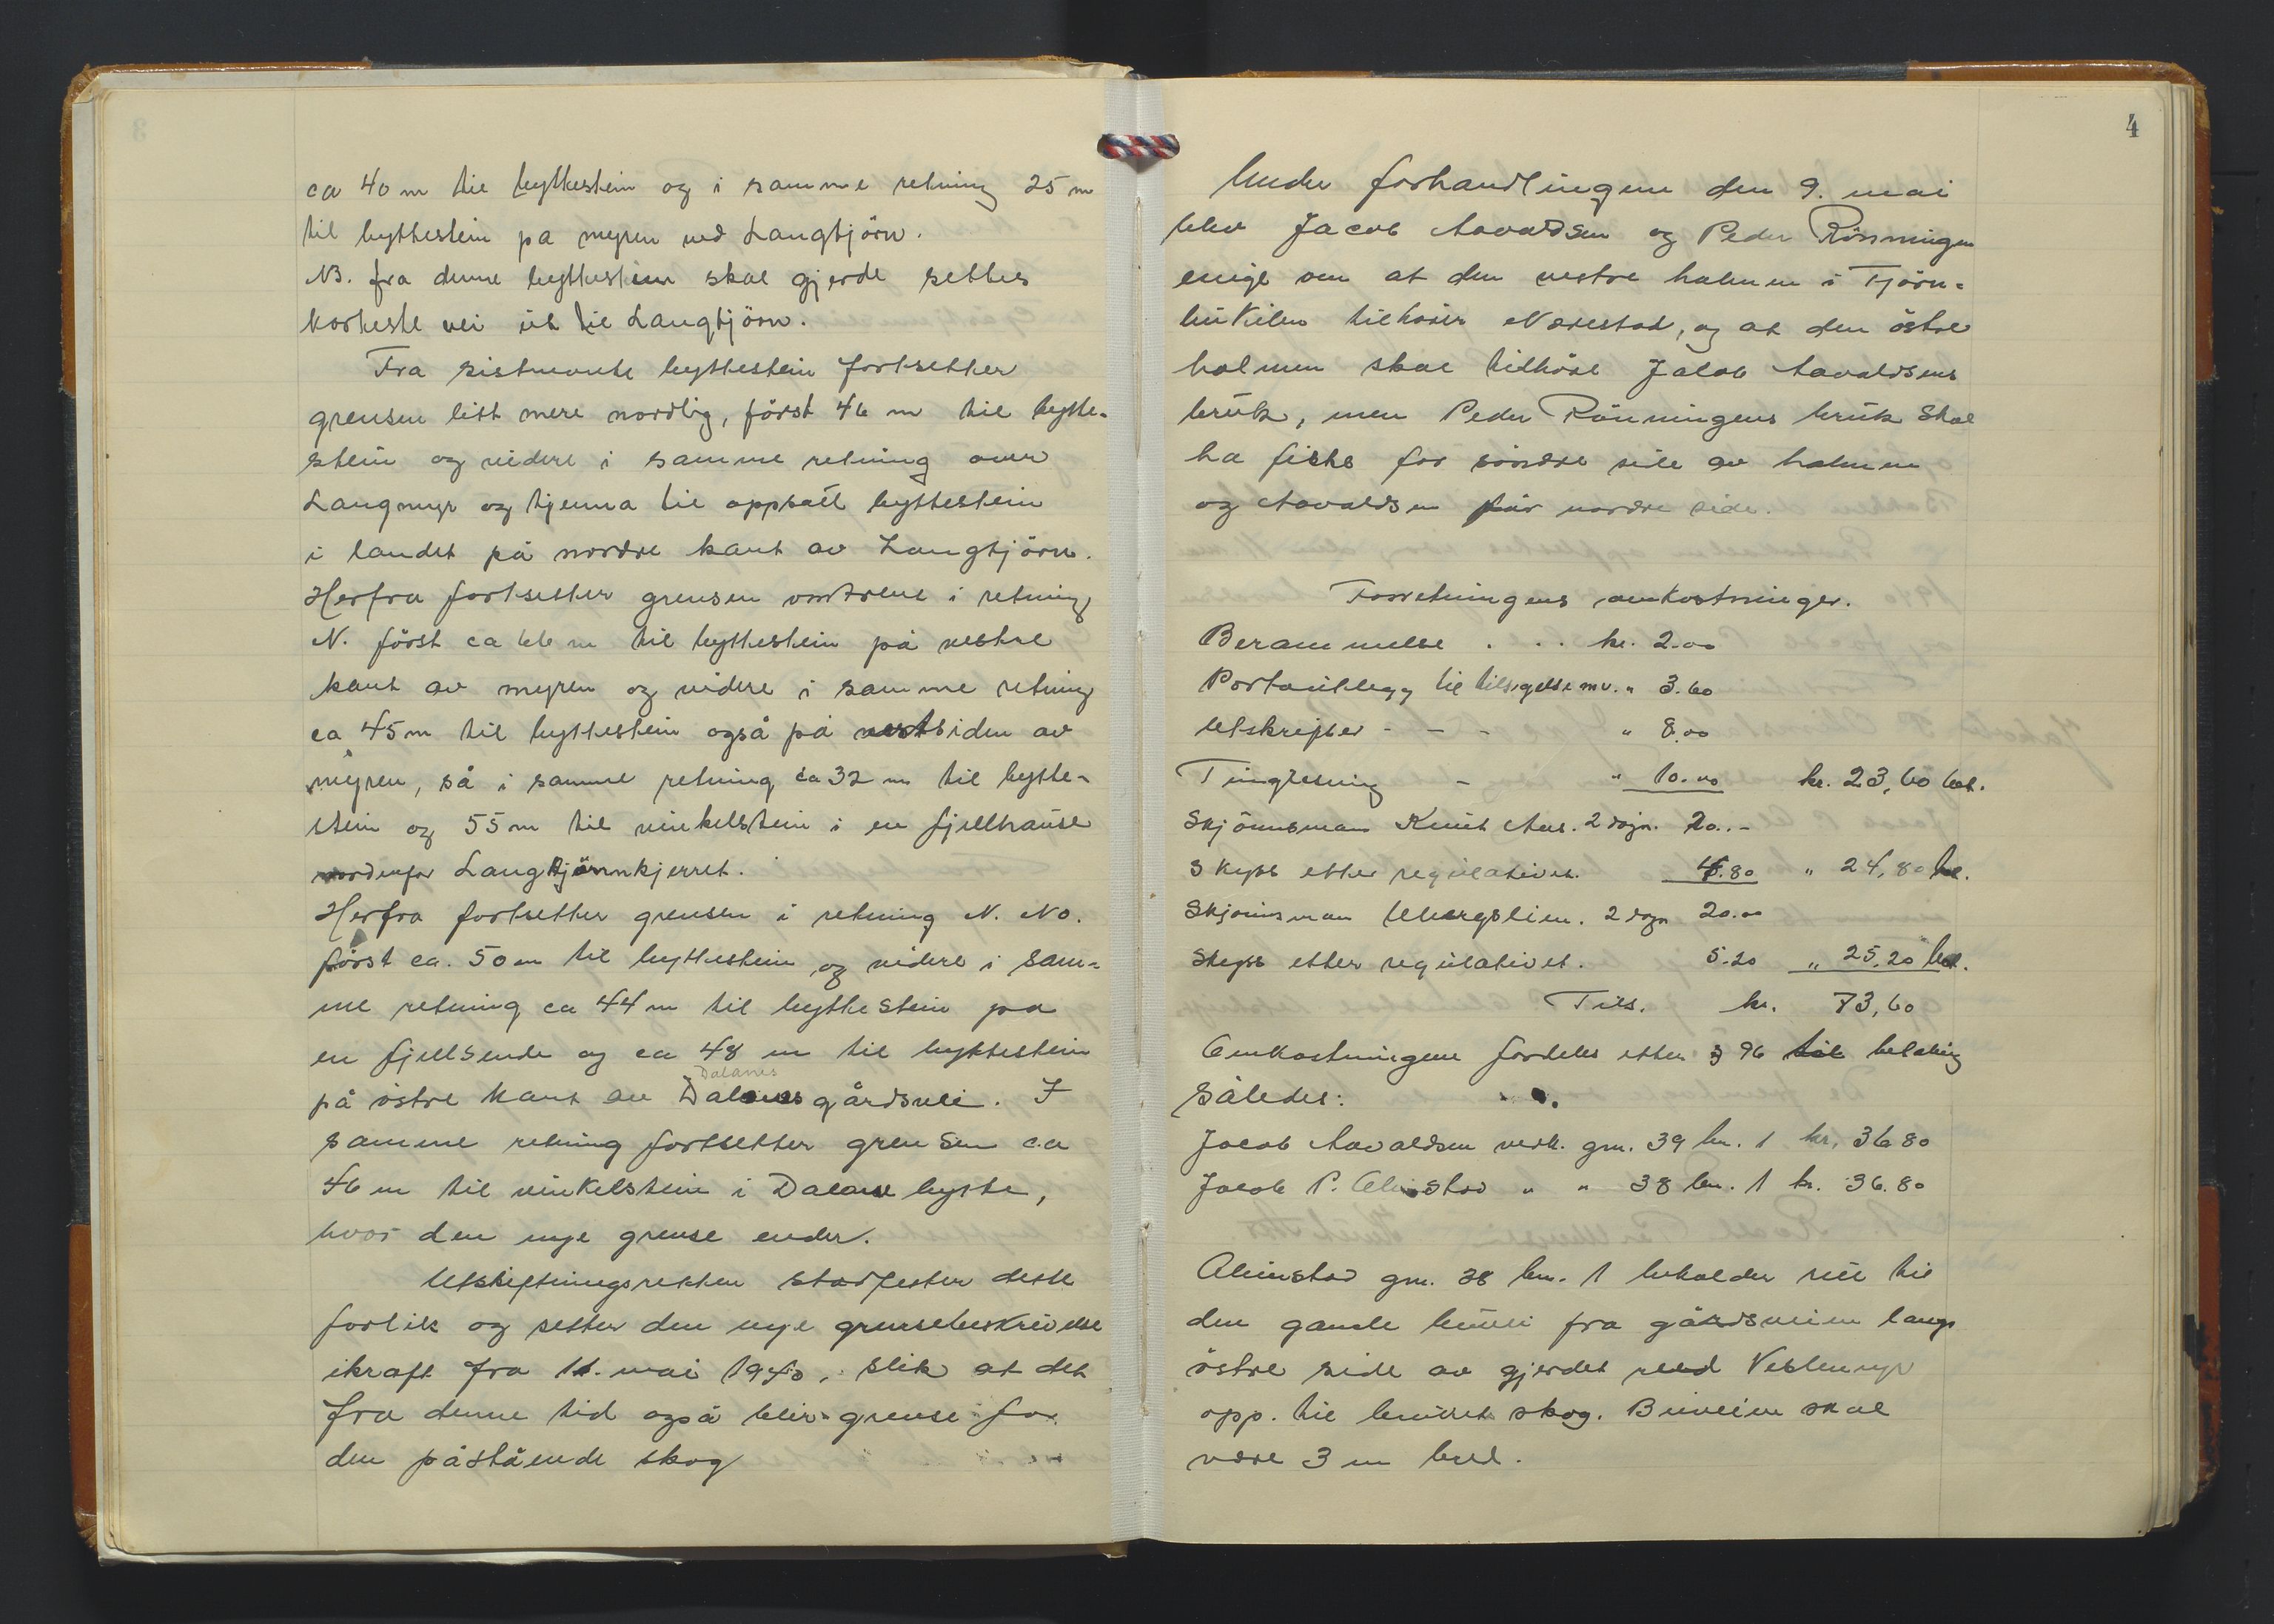 ca 40 m til byttestein og i samme retning 25 m
til byttestein på myren ved Langtjörn.
NB. fra denne byttestein skal gjerde settes
korteste vei ut til Langtjörn.
Fra sistnevnte byttestein fortsetter
grensen litt mere nordlig, först 46 m til bytte-
stein og videre i samme retning over
Langmyr og tjenna til oppsatt byttestein
i landet på nordre kant av Langtjörn.
Herfra fortsetter grensen omtrent i retning
N. först ca 66 m til byttestein på vestre
kant av myren og videre i samme retning
ca 45 m til byttestein også på vestsiden av
myren, så i samme retning ca 32 m til bytte-
stein og 55 m til vinkelstein i en fjellhause
nordenfor Langtjörnnkjerret.
Herfra fortsetter grensen i retning N. NO.
först ca. 50 m til byttestein og videre i sam-
me retning ca 44 m til byttestein på
en fjellsende og ca 48 m til byttestein
Dalanes
på östre kant av Dalanes gårdsvei. I
samme retning fortsetter grensen ca
46 m til vinkelstein i Dalane bytte,
hvor den nye grense ender.
Utskiftningsretten stadfester dette
forlik og setter den nye grensebeskrivelse
ikraft fra 11. mai 1940, slik at det
fra denne tid også blir grense for
den påstående skog
4
Under forhandlingene den 9. mai
blev Jacob Aavaldsen og Peder Rönningen
enige om at den vestre holmen i Tjörn-
bukilen tilhörer Nærestad, og at den östre
holmen skal tilhöre Jakob Aavaldsens
bruk, men Peder Rönningens bruk skal
ha fiske for söndre side av holmen
og Aavaldsen får nordre side.
Forretningens omkostninger.
Berammelse . . . kr. 2.00
Portoutlegg til tilsigelse mv. " 3.60
Utskrifter - - - " 8.00
Tinglesning - " 10.00 kr. 23,60 bet.
Skjönnsman Knut Aas. 2 dogn. 20.-
Skyss etter regulativet. 4.80 " 24,80 bet.
Skjönnsman Ubergslien. 2 dogn 20.00
Skyss etter regulativet. 5.20 " 25,20 bet.
Tils. kr. 73,60
Omkostningene fordeles etter § 96 til betaling
således:
Jacob Aavaldsen vedk. gnr. 39 bn. 1 kr. 36 80
Jacob P. Alinstad " " 38 bn. 1 kr. 36.80
Alinstad gnr. 38 bn. 1 beholder rett til
den gamle buvei fra gårdsveien langs
östre side av gjerdet ved Veslemyr
opp. til brukets skog. Buveien skal
være 3 m bred.